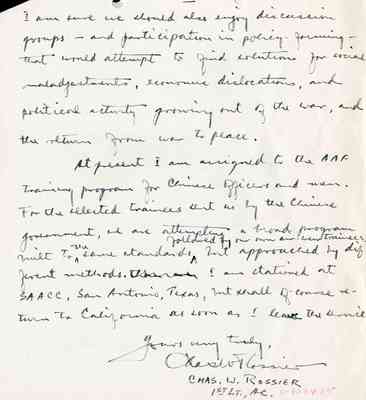 I am sure we should also enjoy discussion
groups - and participation in policy-forming -
that would attempt to find solutions for social
maladjustments, economic dislocations, and
political activity growing out of the war, and
the return from war to peace.
At present I am assigned to the AAF
training program for Chinese officers and men.
For the selected trainees sent us by the Chinese
government, we are attempting a broad program
followed by our own air crew trainees
built to the same standards, but approached by dif
ferent methods. I am stationed at
SAACC, San Antonio, Texas, but shall of course re-
turn to California as soon as I leave the service
Yours very truly,
Chas W Rossier
CHAS. W. ROSSIER
1ST LT., AC.